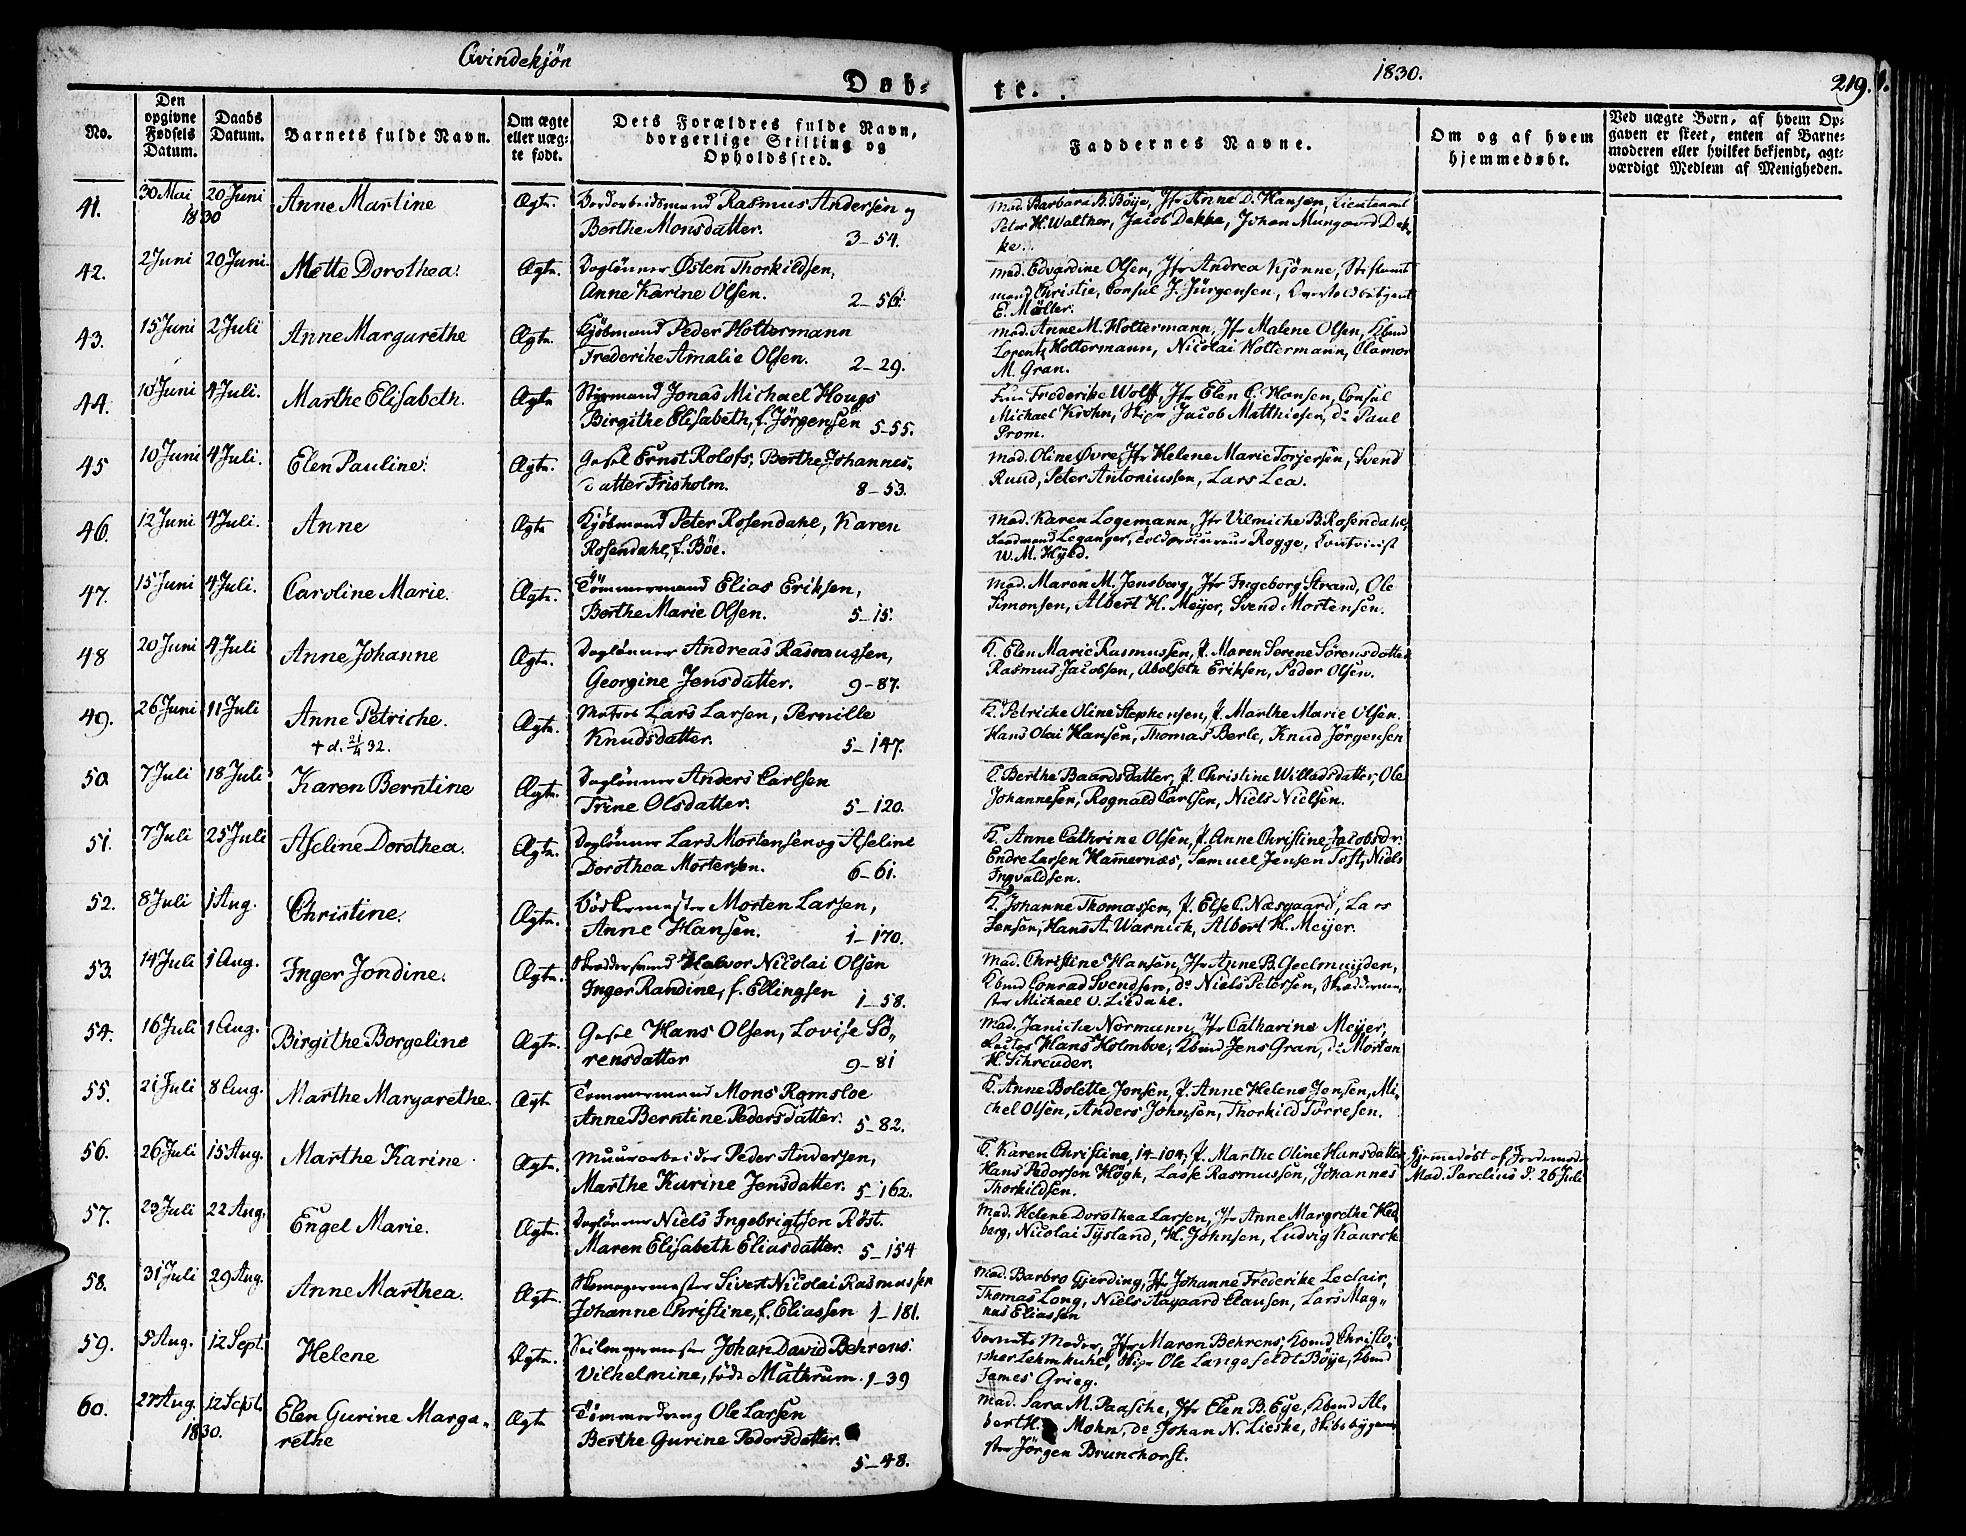 Qvindekjön
Døb-
te.
1830.
219.
No.
Den opgivne Fødsels Datum.
Daabs Datum.
Barnets fulde Navn.
Om ægte eller uæg-
te født.
Dets Forældres fulde Navn,
borgerlige Stilling og
Opholdssted.
Faddernes Navne.
Om og af hvem
hjemmedøbt.
Ved uægte Børn, af hvem Op-
gaven er skeet, enten af Barne-
moderen eller hvilket bekjendt, agt-
værdigt Medlem af Menigheden.
41. 30 Mai 1830 20 Juni Anne Martine Ægte. Bordarbeidsmand Rasmus Andersen og
Berthe Monsdatter. 3-54.
Mad. Barbara B. Böye, Jfr Anne D. Hansen, Lieutenant
Peter H. Walther, Jacob Dekke, Johan Mungaard Dek-
ke.
42. 2 Juni 20 Juni. Mette Dorothea. Ægte. Daglönner Østen Thorkildsen,
Anne Karine Olsen. 2-56.
Mad. Edvardine Olsen, Jfr Andrea Kjönne, Stiftamt
mand Christie, Consul J. Jürgensen, Overtoldbetjent
E. Möller.
43. 15 Juni 2 Juli Anne Margarethe Ægte. Kjöbmand Peder Holtermann
Frederike Amalie Olsen. 2-29.
Mad. Anne M. Holtermann, Jfr Malene Olsen, Kbmd
Lorentz Holtermann, Nicolai Holtermann, Clamor
M. Gran.
44. 10 Juni 4 Juli. Marthe Elisabeth. Ægte Styrmand Jonas Michael Hougs
Birgithe Elisabeth, f. Jörgensen 5-55.
Fru Frederike Wolff, Jfr Elen C. Hansen, Consul
Michael Krohn, Skipr Jacob Matthiesen, do Paul
Prom.
45 10 Juni 4 Juli. Elen Pauline. Ægte. Gesel Ernst Rolofs, Berthe Johannes-
datter Frisholm. 8-53.
Mad. Oline Øvre, Jfr Helene Marie Torjersen, Svend
Ruud, Peter Antoniussen, Lars Lea.
46. 12 Juni 4 Juli. Anne Ægte Kjöbmand Peter Rosendahl, Karen
Rosendahl, f. Böe.
Mad. Karen Logemann, Jfr Vilmiche B. Rosendahl,
Leganger, Rogge,
W. M. Hyed.
47. 15 Juni 4 Juli. Caroline Marie. Ægte. Tömmermand Elias Eriksen,
Berthe Marie Olsen. 5-15.
Mad. Maren M. Jensberg, Jfr Ingeborg Strand, Ole
Simonsen, Albert H. Meyer, Svend Mortensen.
48 20 Juni 4 Juli Anne Johanne Ægte. Daglönner Andreas Rasmussen,
Georgine Jensdatter. 9-87.
K. Elen Marie Rasmussen, P. Maren Serene Sörensdatter
Rasmus Jacobsen, Abelseth Eriksen, Peder Olsen.
49. 26 Juni 11 Juli Anne Petriche.
+ d. 21/4 32.
Ægte. Matros Lars Larsen, Pernille
Knudsdatter. 5-147.
K. Petricke Oline Stephensen, P. Marthe Marie Olsen.
Hans Olai Hansen, Thomas Berle, Knud Jörgensen
50. 7 Juli 18 Juli Karen Berntine Ægte. Daglönner Anders Carlsen
Trine Olsdatter. 5-120.
K. Berthe Baardsdatter, P. Christine Willadsdatter, Ole
Johannesen, Rognald Carlsen, Niels Nielsen.
51. 7 Juli 25 Juli Aseline Dorothea. Ægte. Daglönner Lars Mortensen og Aseline
Dorothea Mortensen. 6-61.
K. Anne Cathrine Olsen, P. Anne Christine Jacobsdr.
Endre Larsen Hamernæs, Samuel Jensen Toft, Niels
Ingvaldsen.
52. 8 Juli 1 Aug. Christine. Ægte. Bödkermester Morten Larsen,
Anne Hansen. 1-170.
K. Johanne Thomassen, P. Else C. Næsgaard, Lars
Jensen, Hans A. Warnich, Albert H. Meijer.
53. 14 Juli 1 Aug. Inger Jondine. Ægte. Skræddersvend Halvor Nicolai Olsen
Inger Randine, f. Ellingsen 1-58.
Mad. Christine Hansen, Jfr Anne B. Geelmuijden,
Kbmd Conrad Svendsen, do Niels Petersen, Skrædderme-
ster Michael U. Liedahl.
54. 16 Juli 1 Aug. Birgithe Borgeline Ægte. Gesel Hans Olsen, Lovise Sö-
rensdatter 9-81
Mad. Janiche Normann, Jfr Catharine Meijer,
Lector Hans Holmboe, Kbmd Jens Gran, do Morten
H. Schreuder.
55. 21 Juli 8 Aug. Marthe Margarethe. Ægte Tömmermand Mons Ramsloe
Anne Berntine Pedersdatter. 5-82.
K. Anne Bolette Jensen, P. Anne Helene Jensen, Mi-
chel Olsen, Anders Johnsen, Thorkild Torresen.
56. 26 Juli 15 Aug. Marthe Karine Ægte. Muurarbeider Peder Andersen,
Marthe Kurine Jensdatter. 5-162.
K. Karen Christine, 14-104, P. Marthe Oline Hansdatter
Hans Pedersen Högh, Lasse Rasmussen, Johannes
Thorkildsen.
Hjemmedöbt af Jordemoder
Mad. Parelius d. 26 Juli
57. 29 Juli 22 Aug. Engel Marie. Ægte. Daglönner Niels Ingebrigtsen Röst.
Maren Elisabeth Eliasdatter. 5-154
Mad. Helene Dorothea Larsen, Jfr Anne Margrethe Hed
berg, Nicolai Tysland, H. Johnsen, Ludvig Kaurck
58. 31 Juli 29 Aug. Anne Marthea. Ægte. Skomagermester Sivert Nicolai Rasmussen
Johanne Christine, f. Eliassen 1-181.
Mad. Barbro Gjerding, Jfr Johanne Frederike Leclair,
Thomas Long, Niels Aagaard Clausen, Lars Mag-
nus Eliassen
59. 5 Aug. 12 Sept. Helene Ægte. Seilmagermester Johan David Behrens.
Vilhelmine, föd Muthrum. 1-39
Barnets Moder, Jfr Maren Behrens, Kbmd Christo-
pher Lehmkuhl, Skipr Ole Langefeldt Böije, Kbmd
James Grieg.
60. 27 Aug. 1830. 12 Sept. Elen Gurine Marga-
rethe
Ægte Tömmerdreng Ole Larsen
Berthe Gurine Pedersdatter.
5-48.
Mad. Sara M. Paasche, Jfr Elen B. Eye, Kbmd Al-
bert H. Mohn, do Johan N. Lieske, Skibsbyggeme-
ster Jörgen Brunchorst.